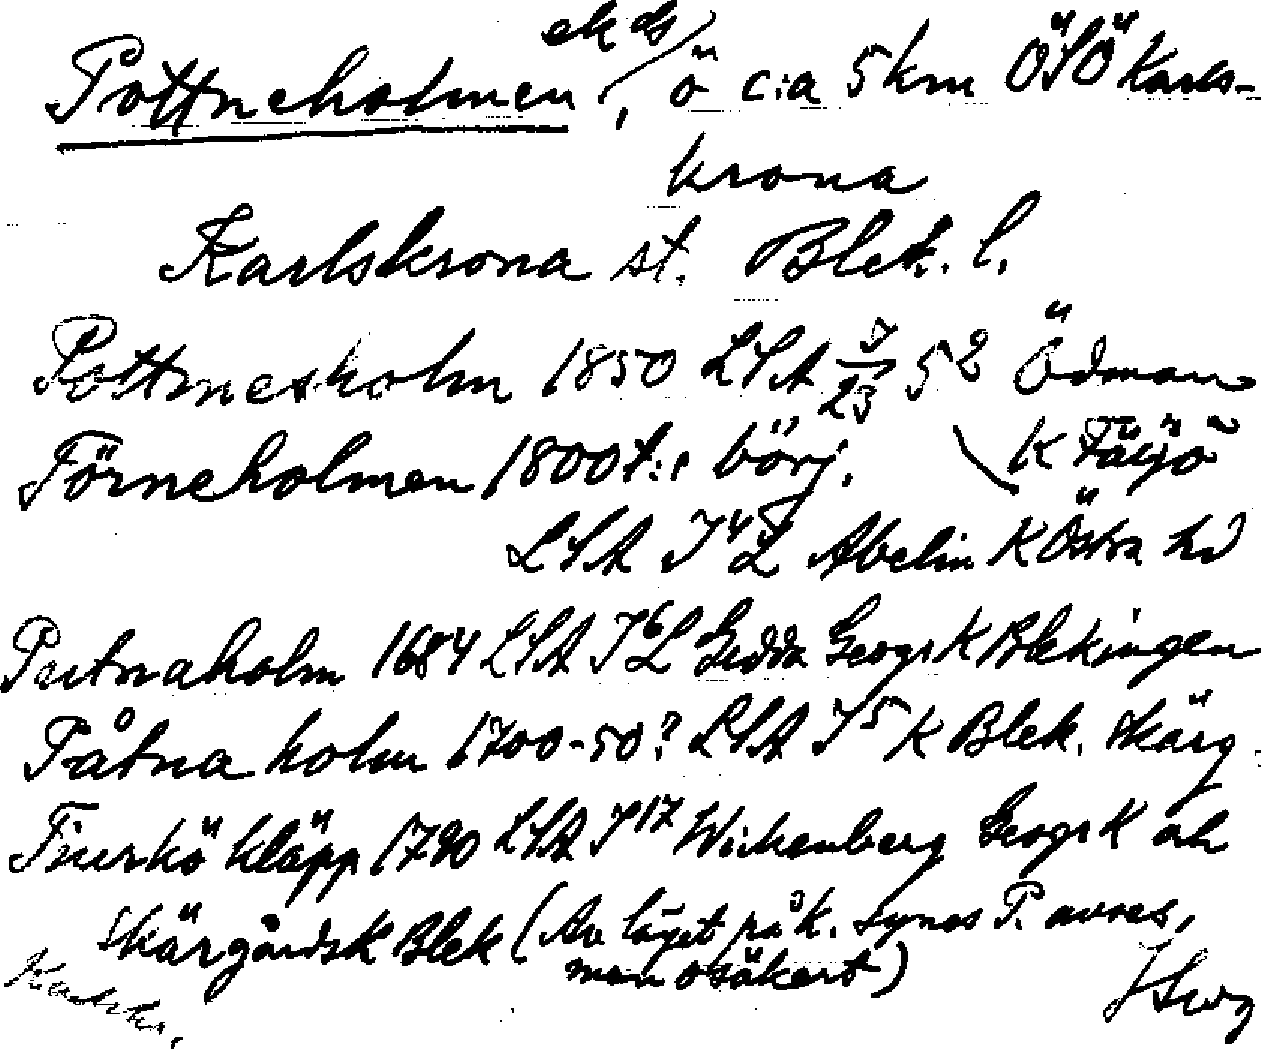 Pottneholmen ek ds, ö c:a 5 km ÖSÖ Karls-
krona
Karlskrona st. Blek. l.
Pottnesholm 1850 LSA 5² Ödman
K Täljö
Törneholmen 1800t:s börj.
LSA J⁴L Abelin K Östra hd
Putnaholm 1684 LSA J⁶L Gedda Geogr K Blekingen
Påtna holm 1700-50? LSA J⁵ K Blek. Skärg.
Tiurkö kläpp 1790 LSA J¹⁷ Wickenberg Geogr K ah
Skärgårdsk Blek (Av läget på k. synes P. avses,
men osäkert)
Karlskr.